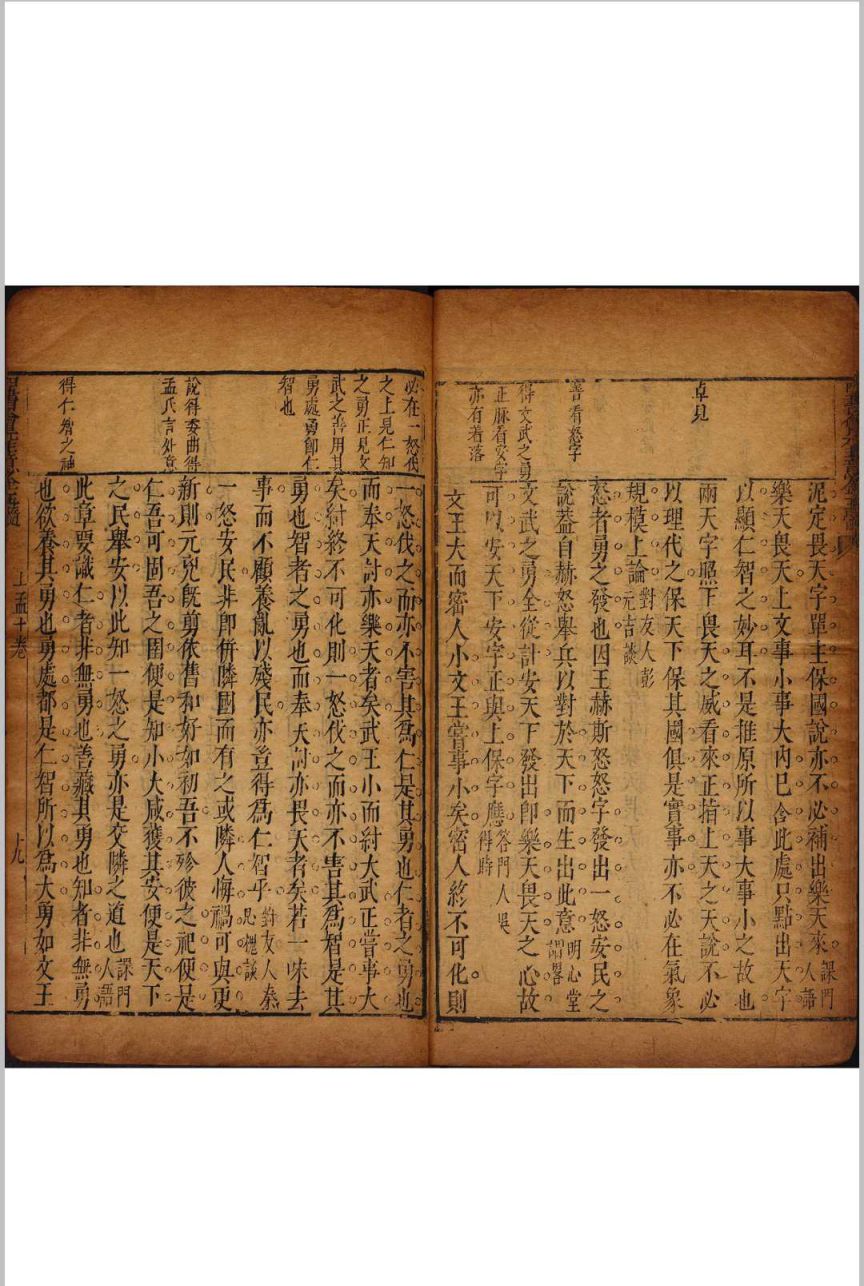 卓見
善看怒字
得文武之勇
正脉看安字
亦有着落
泥定畏天字單主保國說亦不必補出樂天來課門人語
樂天畏天上文事小事大內已含此處只點出天字
以顯仁智之妙耳不是推原所以事大事小之故也
兩天字照下畏天之威看來正指上天之天說不必
以理代之保天下保其國俱是實事亦不必在氣象
規模上論對友人彭元吉談
怒者勇之發也因王赫斯怒怒字發出一怒安民之
說蓋自赫怒舉兵以對於天下而生出此意明心堂謂畧
文武之勇全從計安天下發出卽樂天畏天之心故
可以安天下安字正與上保字應答門人吳得時
文王大而密人小文王嘗事小矣密人終不可化則
必在一怒伐
之上見仁知
之勇正見文
武之善用其
勇處勇卽仁
智也
說得委曲得
孟氏言外意
得仁智之神
一怒伐之而亦不害其爲仁是其勇也仁者之勇也
而奉天討亦樂天者矣武王小而紂大武正嘗事大
矣紂終不可化則一怒伐之而亦不害其爲智是其
勇也智者之勇也而奉天討亦畏天者矣若一味去
事而不顧養亂以殘民亦豈得爲仁智乎對友人秦思權談
一怒安民非卽併隣國而有之或隣人悔禍可與更
新則元兇旣剪依舊和好如初吾不殄彼之祀便是
仁吾可固吾之圉便是知小大咸獲其安便是天下
之民舉安以此知一怒之勇亦是交隣之道也課門人語
此章要識仁者非無勇也善藏其勇也知者非無勇
也欲養其勇也勇處都是仁智所以爲大勇如文王
上孟十卷
十九